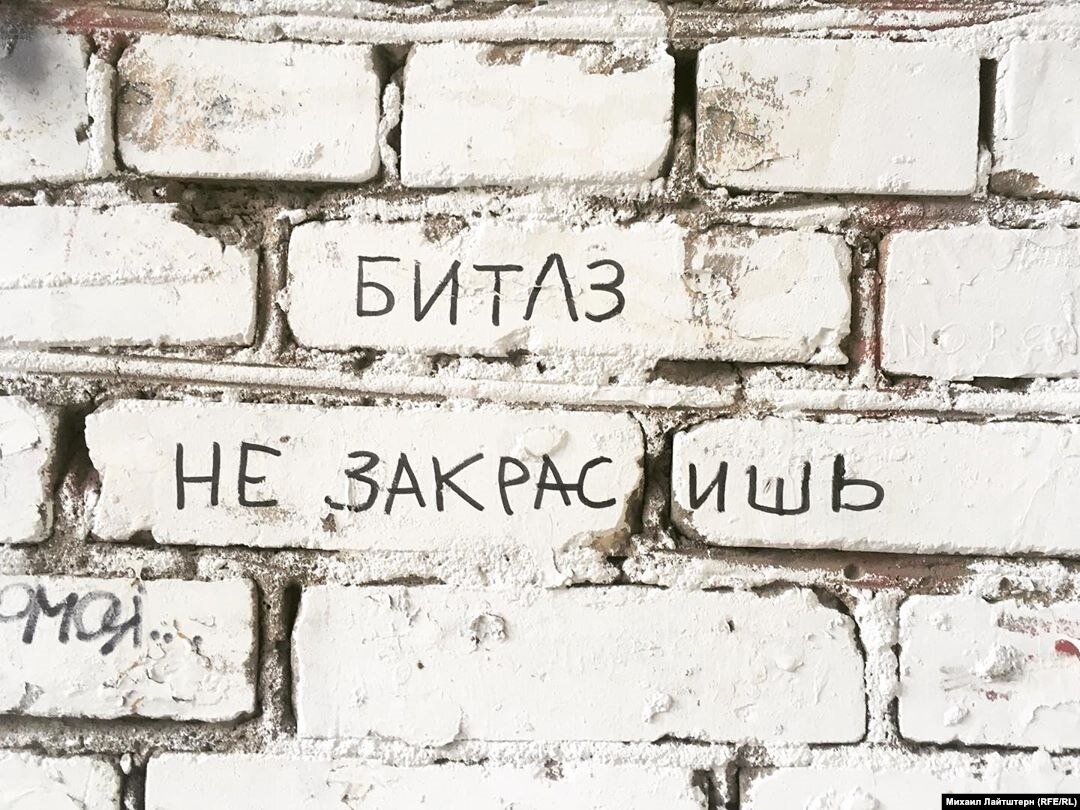 БИТЛЗ
НЕ ЗАКРАСИШЬ
Михаил Лайтштерн (RFE/RL)